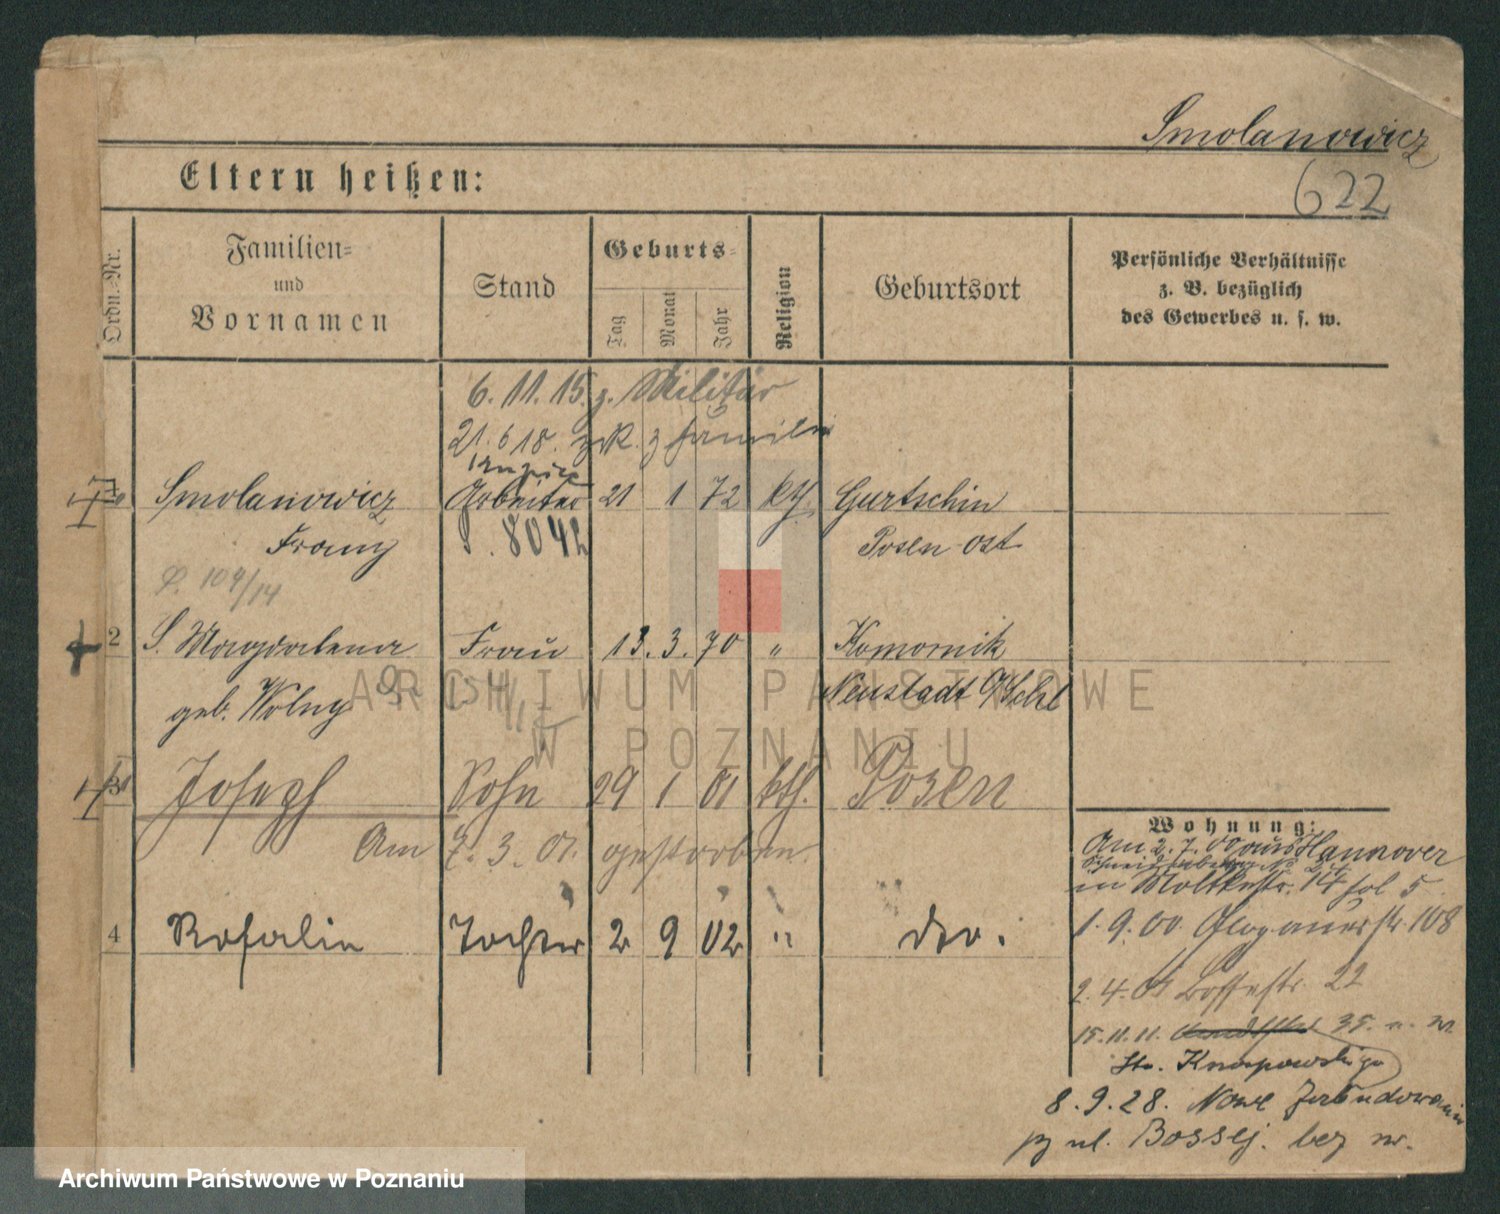 Smolanowicz
622
Eltern heißen:
Ordn.-Nr.
Familien-
und
Vornamen
Stand
Geburts-
Tag
Monat
Jahr
Religion
Geburtsort
Persönliche Verhältnisse
z. B. bezüglich
des Gewerbes u. s. w.
6. 11. 15. z. Militär
21. 6 18. zrk. z Familie
Smolanowicz Arbeiter 21 1 72 kth. Gurtschin
Franz 8042 Posen-Ost
109/14
2 S. Magdalena Frau 13. 3. 70 " Komornik
geb. Wolny Neustadt O/Schl
3 Joseph Sohn 29 1 01 kth. Posen
Am 7. 3. 01. gestorben.
4 Rosalie Tochter 2 9 02 " dto.
Wohnung:
Am 2. 7. 00 aus Hannover
in Moltkestr. 14 fol 5
1. 9. 00 Glogauerstr. 108
2. 4. 01 Bossestr. 22
15. 11. 11. 35.
Knapowskiego
8. 9. 28. Nowe Zabudowania
przy ul. Bossej. bez nr.
ARCHIWUM PAŃSTWOWE
W POZNANIU
Archiwum Państwowe w Poznaniu